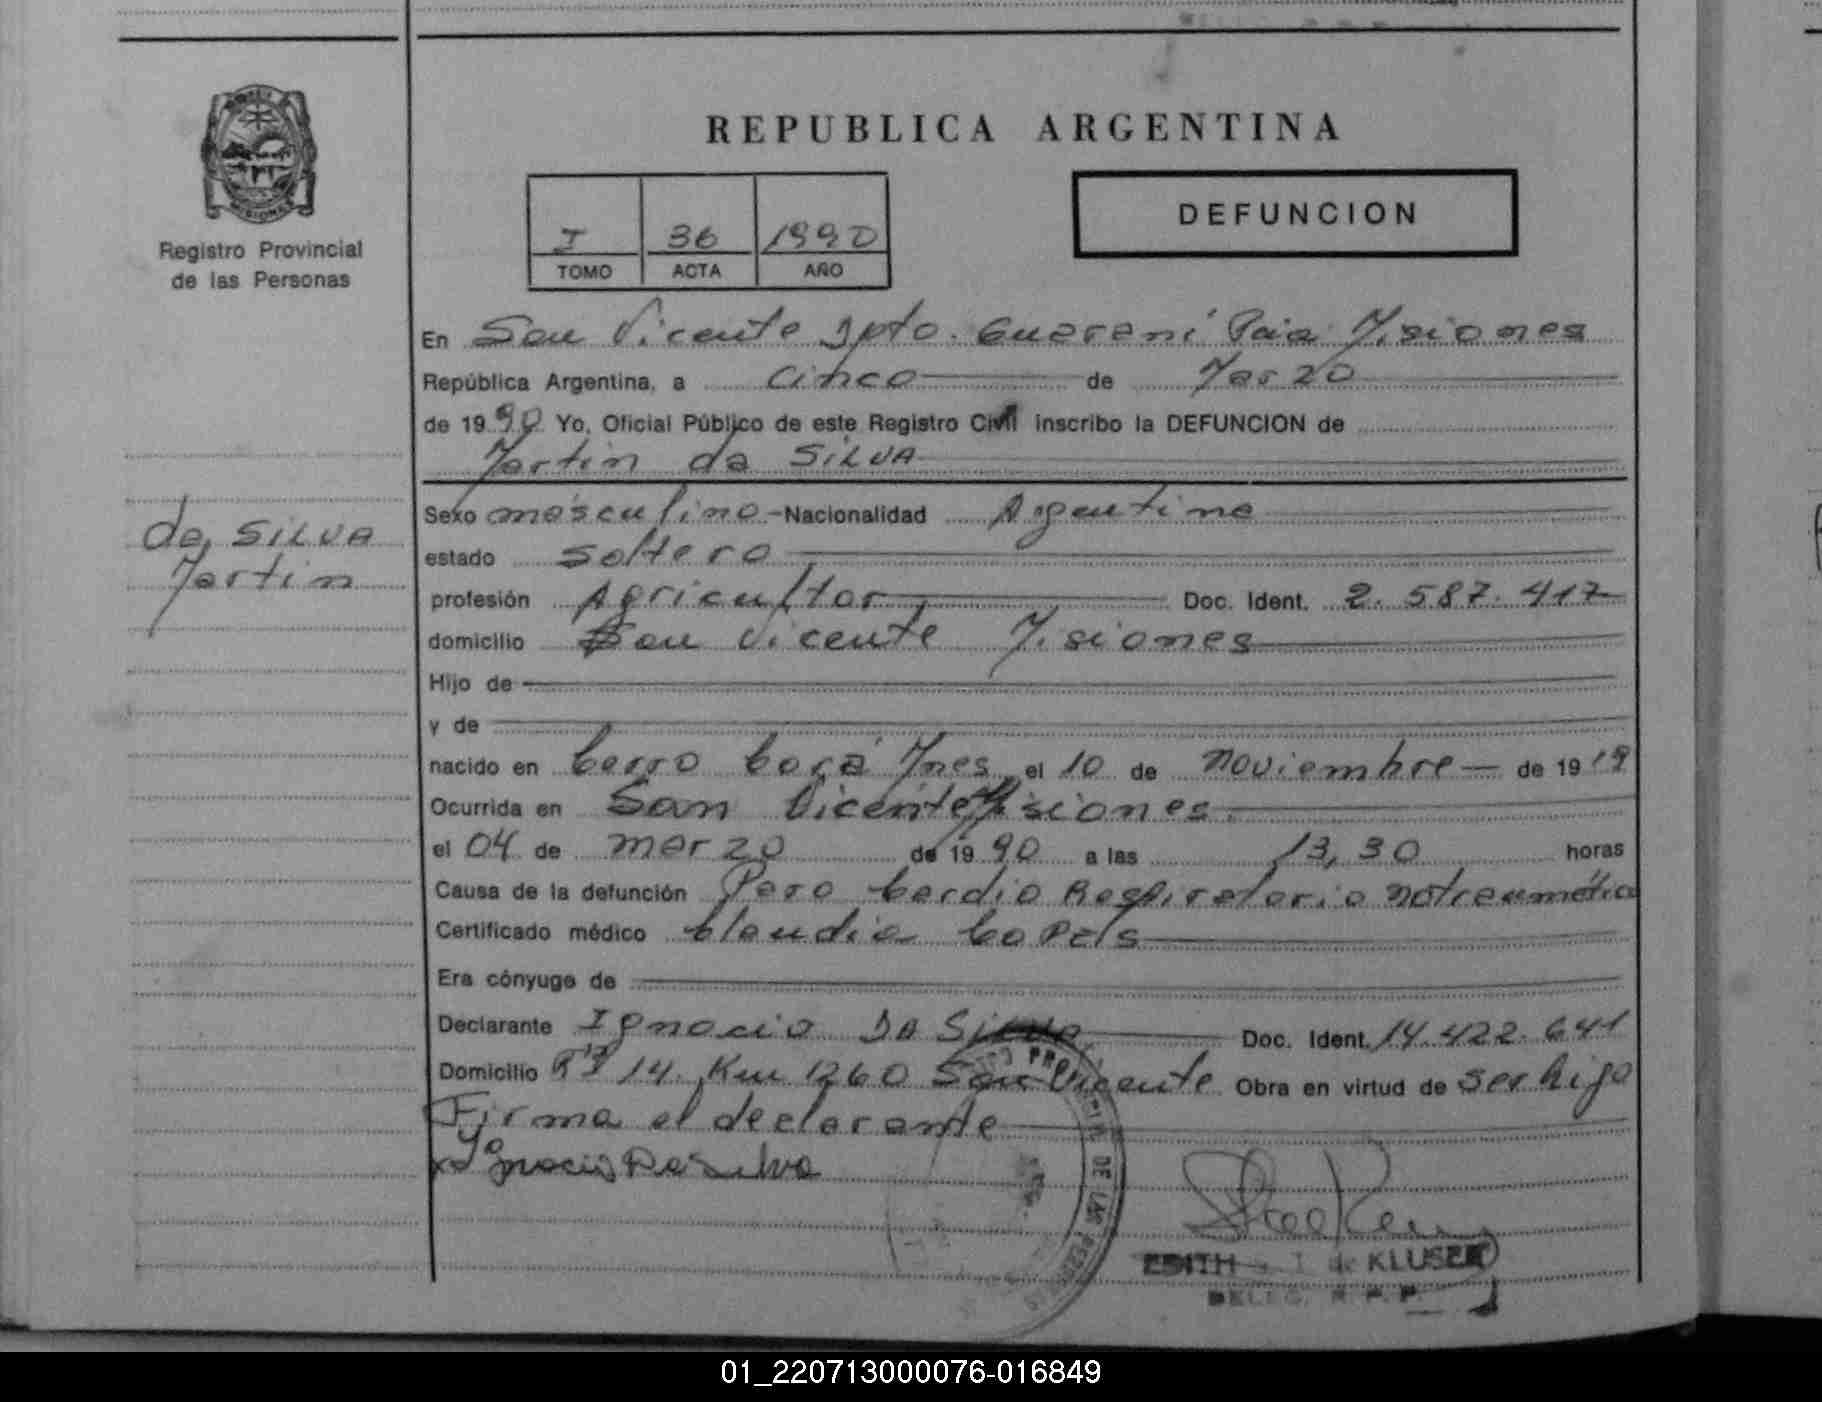 REPUBLICA ARGENTINA
MISIONES
Registro Provincial
de las Personas
I 36 1990
TOMO ACTA AÑO
DEFUNCION
En San Vicente Dpto. Guarani Pcia Misiones
República Argentina, a cinco de Marzo
de 1990 Yo, Oficial Público de este Registro Civil inscribo la DEFUNCION de
Martin da SILVA
da SILVA
Martin
Sexo masculino - Nacionalidad Argentina
estado soltero
profesión Agricultor Doc. Ident. 2.587.417
domicilio San Vicente Misiones
Hijo de
y de
nacido en Cerro Corá Mnes el 10 de Noviembre de 1919
Ocurrida en San Vicente Misiones
el 04 de marzo de 1990 a las 13,30 horas
Causa de la defunción Paro Cardio Respiratorio notraumática
Certificado médico Claudia
Era cónyuge de
Declarante Ignacio DA Silva Doc. Ident. 14.422.641
Domicilio 14 Km 1260 San Vicente Obra en virtud de ser hijo
Firma el declarante
Ignacio Da Silva
PROVINCIAL DE LAS PERSONAS
EDITH I. de KLUSER
DELEG. R. P. P.
01_220713000076-016849